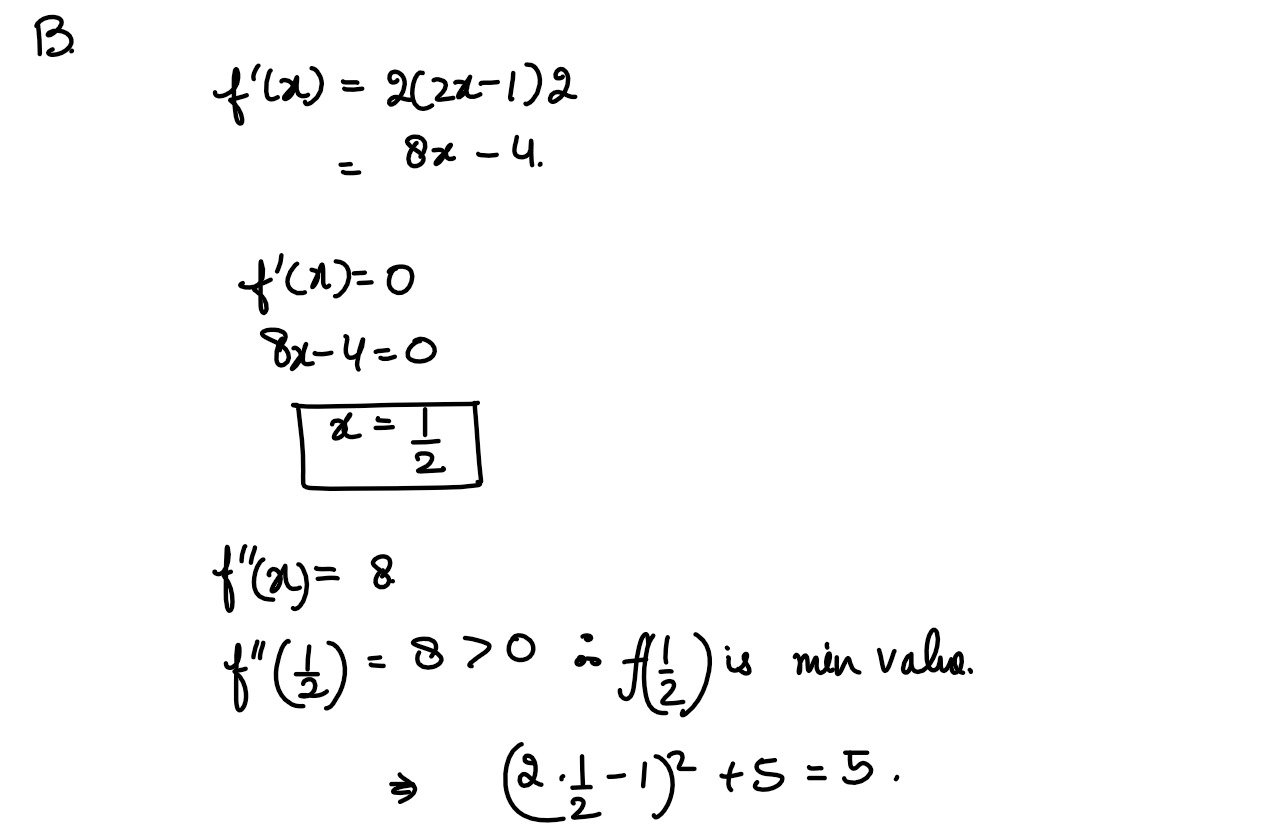 B.
f'(x) = 2(2x-1)2
= 8x - 4.
f'(x)= 0
8x-4=0
x = 1/2
f''(x)= 8
f''(1/2) = 8 > 0 ∴ f(1/2) is min value.
⇒ (2·1/2 - 1)² + 5 = 5.